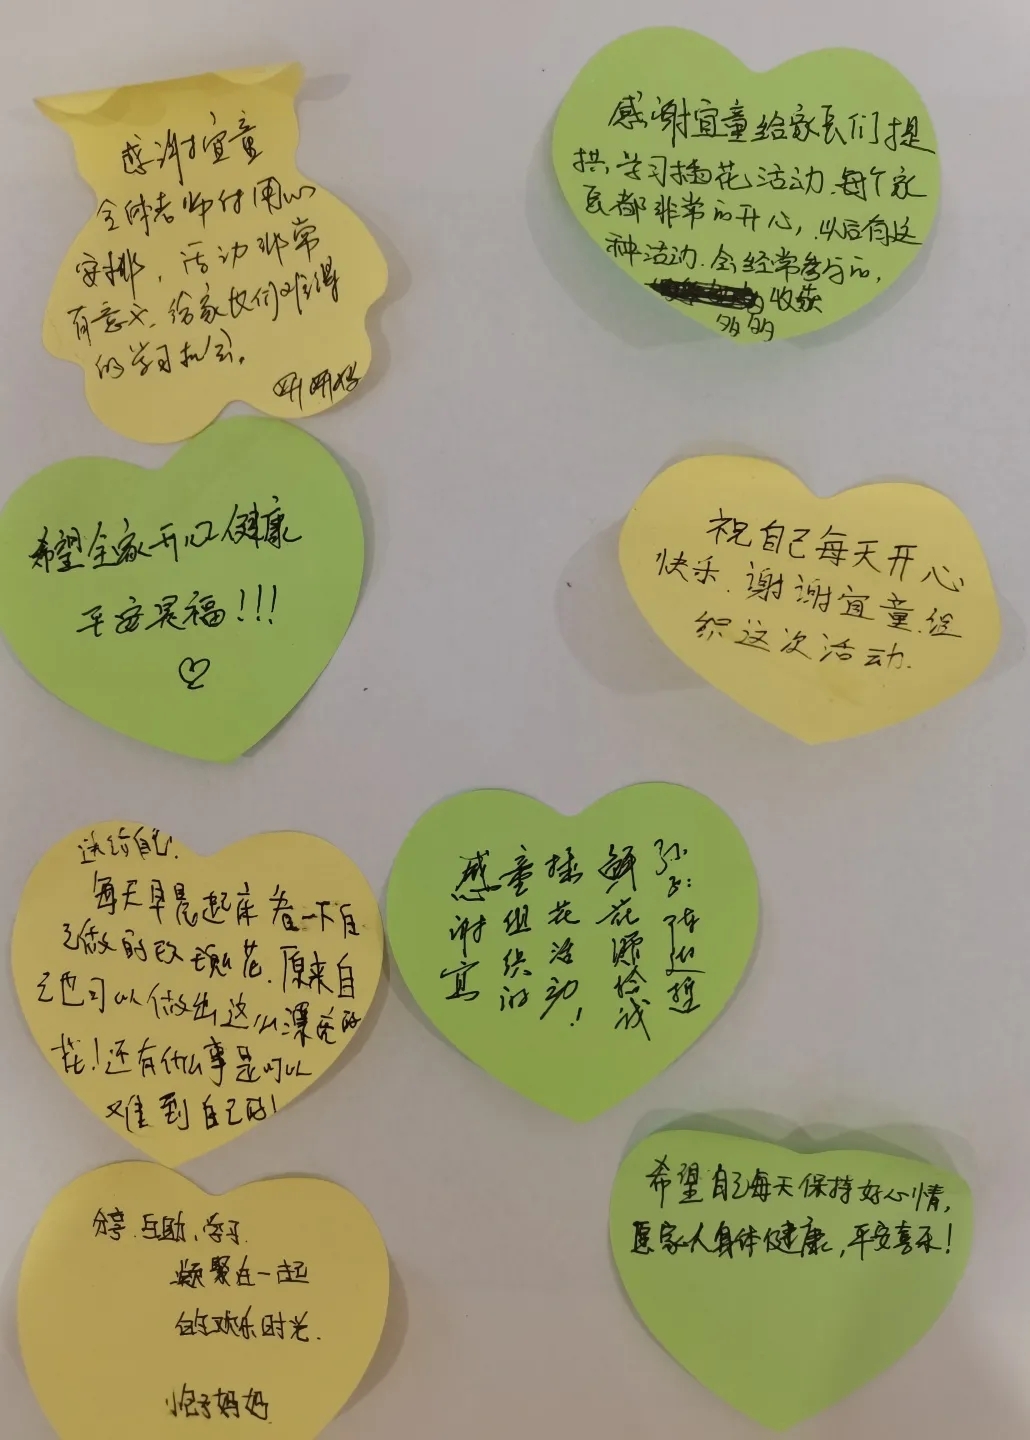 感谢宜童
全体老师付用心
安排，活动非常
有意义、给家长们难得
的学习机会。
感谢宜童给家长们提
供学习插花活动.每个家
长都非常的开心，以后有这
种活动.会经常参与的，
收获
多多的
希望全家开心健康
平安幸福!!!
祝自己每天开心
快乐.谢谢宜童组
织这次活动.
送给自己.
每天早晨起床看一下自
己做的玫瑰花.原来自
己也可以做出这么漂亮的
花!还有什么事是可以
难到自己的!
感谢宜
童组织的
插花活动!
鲜花源给我
分享.互助、学习
凝聚在一起
的欢乐时光.
妈妈
希望自己每天保持好心情,
愿家人身体健康,平安喜乐!